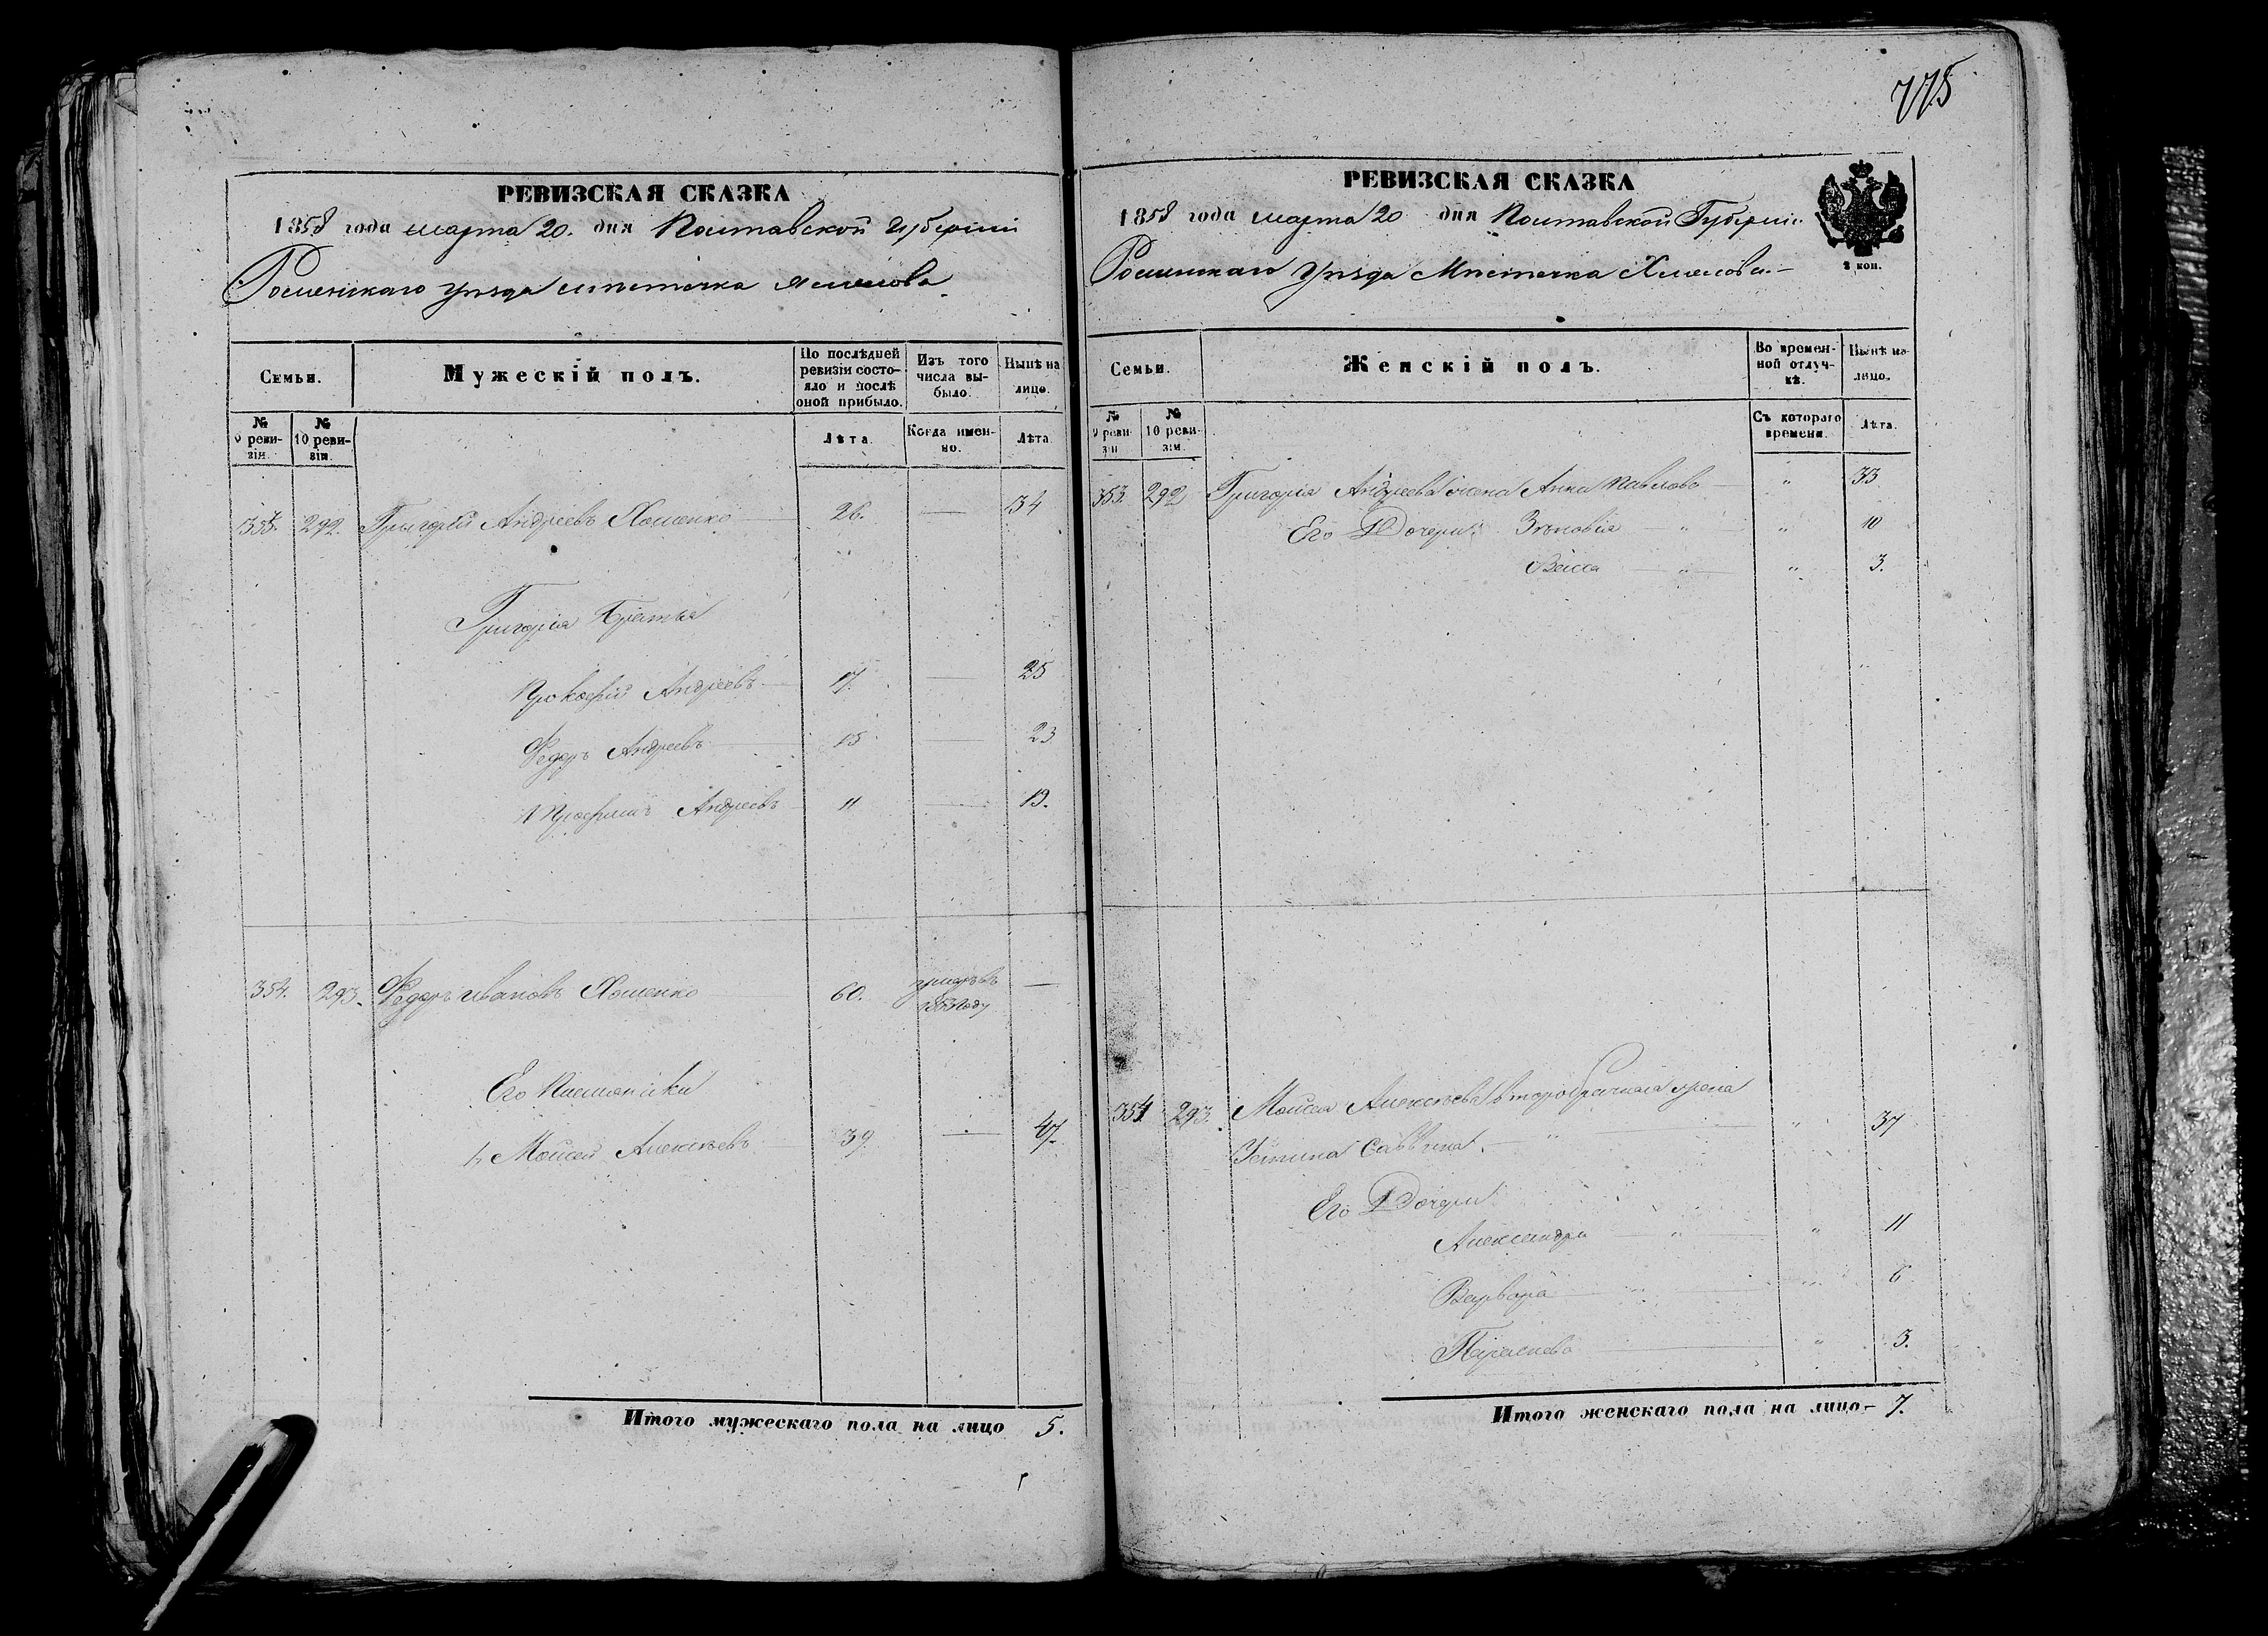 775
РЕВИЗСКАЯ СКАЗКА
1858 года марта 20. дня Полтавской губерніи
Роменскаго уѣзда мѣстечка Хмелова
Семьи.
Мужескій полъ.
По послѣдней ревизіи состояло и послѣ оной прибыло.
Изъ того числа выбыло.
Нынѣ на лицо.
№ 9 ревизіи.
№ 10 ревизіи.
Лѣта.
Когда именно.
Лѣта.
353. 292. Григорій Андреевъ Хоменко 26. — 34
Григорія Братья
Прокофій Андреевъ 17. — 25
Федоръ Андреевъ 15 — 23
Андреевъ 11 — 19.
354. 293. Федоръ Ивановъ Хоменко 60. —
году
Его Племянники
1, Моисей Алексѣевъ 39. — 47.
Итого мужескаго пола на лицо 5.
РЕВИЗСКАЯ СКАЗКА
1858 года марта 20 дня Полтавской Губерніи
Роменскаго Уѣзда Мѣстечка Хмелова.—
2 коп.
Семьи.
Женскій полъ.
Во временной отлучкѣ.
Нынѣ на лицо.
№ 9 ревизіи
№ 10 ревизіи.
Съ котораго времени.
Лѣта.
353. 292 Григорія Андреева жена Анна Павлова „ 33
Его Дочери: Зѣновія „ „ 10
Васса „ „ 3.
354 293. Моисея Алексѣева второбрачная жена
Устина Саввина „ „ 37
Его Дочери
Александра „ „ 11
Варвара „ „ 6
Параскева „ 3.
Итого женскаго пола на лицо— 7.